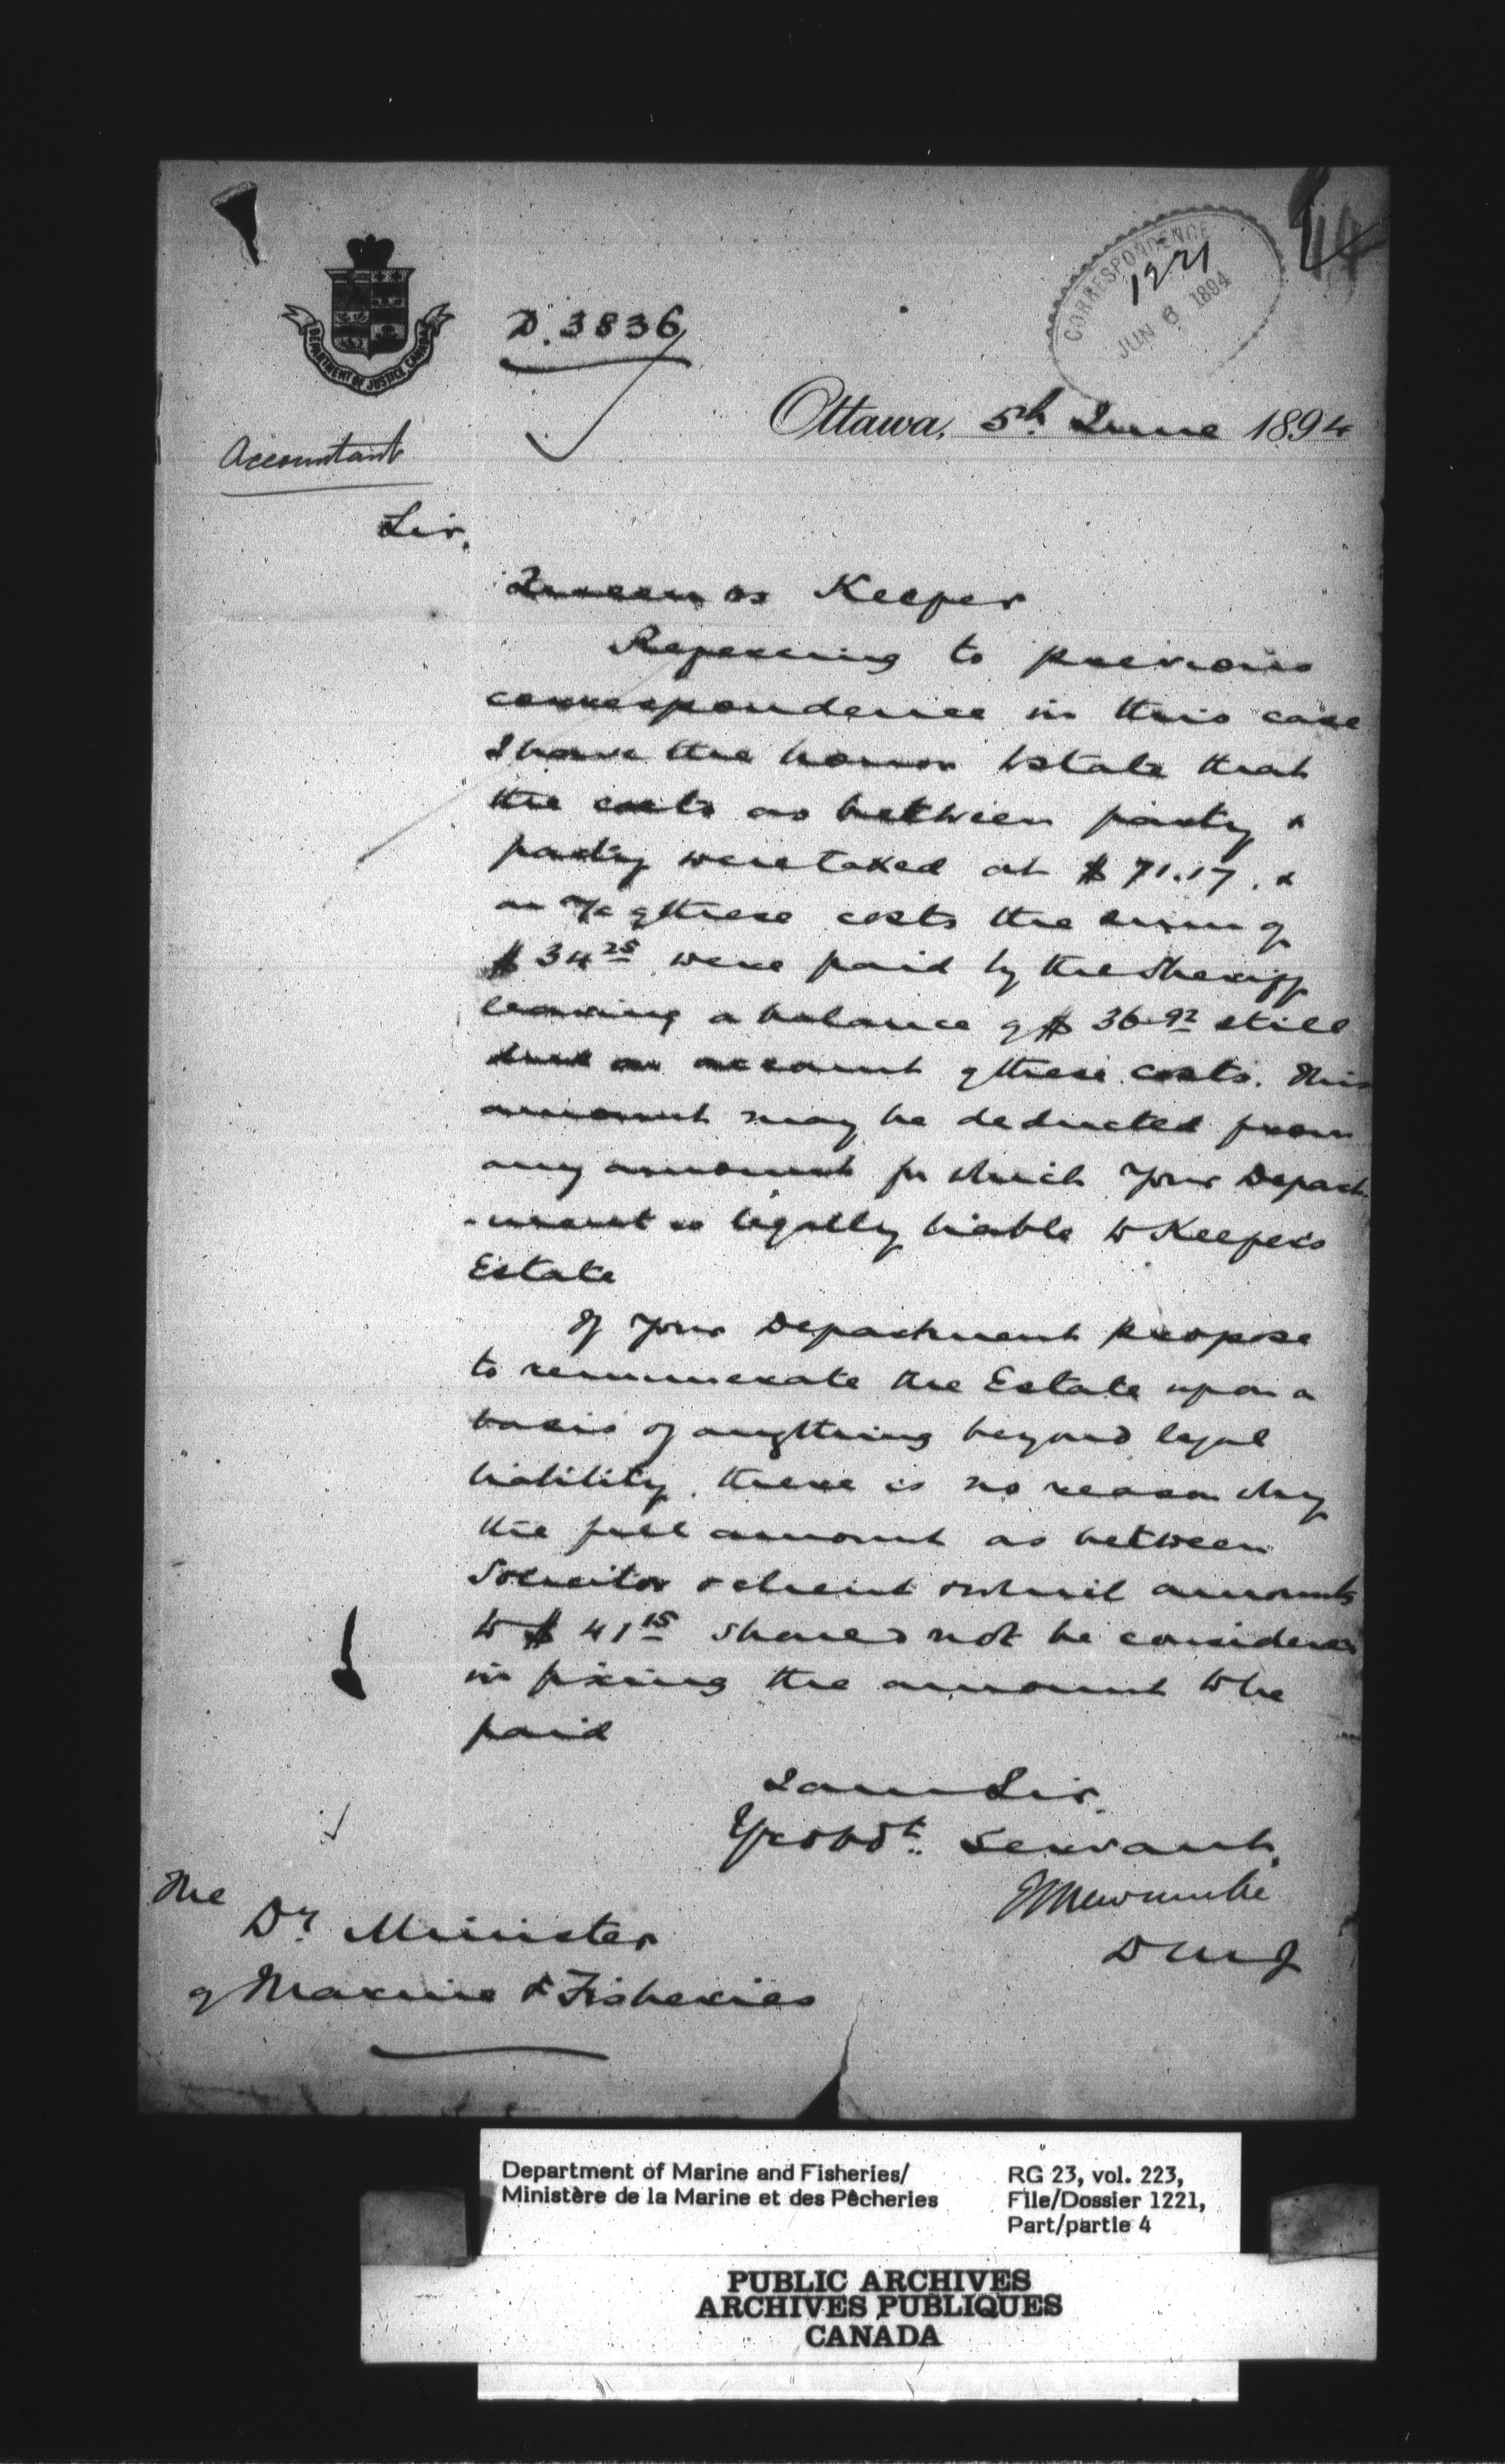 DEPARTMENT OF JUSTICE, CANADA
D. 3836
CORRESPONDENCE
1221
JUN 6 1894
Ottawa, 5th June 1894
Accountant
Sir,
Queen vs Keeper
Referring to previous
correspondence in this case
I have the honor to state that
the costs as between party &
party were taxed at $71.17. &
on a/c of these costs the sum of
$34 25 were paid by the Sheriff
leaving a balance of $36 92 still
due on account of these costs. This
amount may be deducted from
any amount for which your Depart-
-ment is legally liable to Keeper's
Estate
If your Department propose
to remunerate the Estate upon a
basis of anything beyond legal
liability, there is no reason why
the full amount as between
Solicitor & client which amounts
to $41 15 should not be considered
in fixing the amount to be
paid
I am Sir,
Yr obdt. Servant,
E Newcombe
D M J
The
Dy Minister
of Marine & Fisheries
Department of Marine and Fisheries/
Ministère de la Marine et des Pêcheries
RG 23, vol. 223,
File/Dossier 1221,
Part/partie 4
PUBLIC ARCHIVES
ARCHIVES PUBLIQUES
CANADA